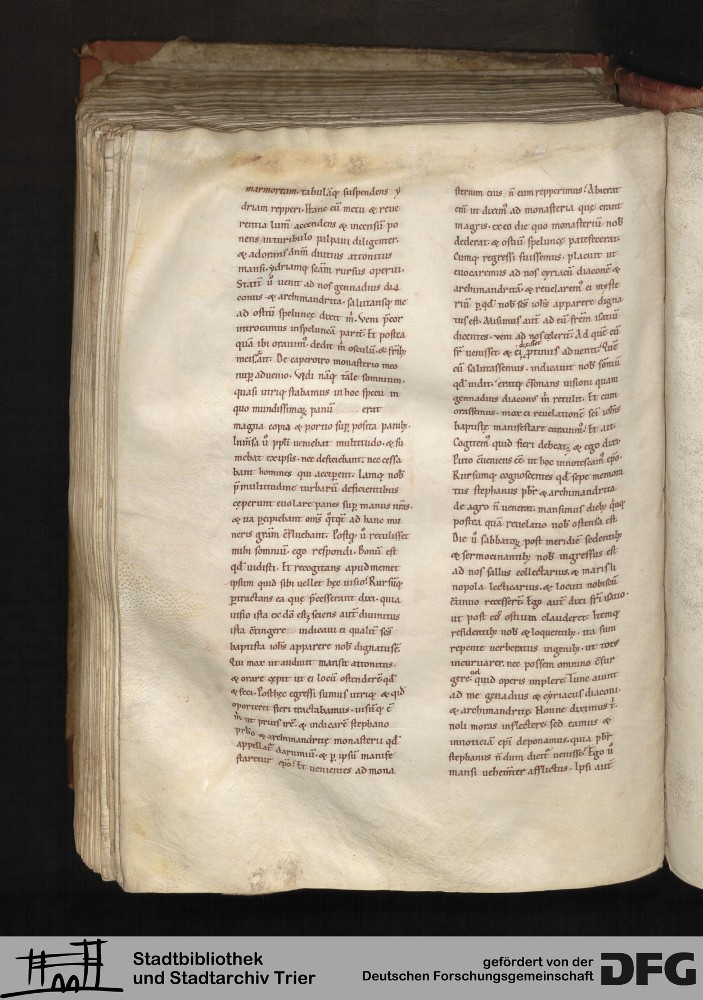 marmoream. tabulāq; suspendens y
driam repperi. Hanc cū metu & reue
rentia lum̄ accendens & incensū po
nens in turibulo palpaui diligenter.
& adorans dn̄m diutius attonitus
mansi. ydriamq; sc̄am rursus operui.
Statī ū uenit ad nos gennadius dia
conus. & archimandrita. salutansq; me
ad ostiū speluncę dixit m̄. Veni p̄cor
introeamus in speluncā parit̄. Et postea
quā ibi orauim᷒. dedit m̄ osculū. & frīb;
meis. ait. De caperotro monasterio meo
nup̄ aduenio. Vidi nāq; tale somnium.
quasi utriq; stabamus in hoc specu in
quo mundissimoꝝ panū erat
magna copia & portio sup̄ posita panib;.
Inm̄sa ū pp̄li ueniebat multitudo. & su
mebat ex ipsis. nec deficiebant. nec cessa
bant homines qui acciperent. Iamq; nob̄
p̄ multitudine turbarū deficientibus
cęperunt euolare panes sup̄ manus nr̄as.
& ita p̄cipiebant om̄s q̄tq̄t ad hanc mu
neris grām cōfluebant. Postq̄ ū retulisset
mihi somniū. ego respondi. Bonū est
qd̄ uidisti. Et recogitans apud memet
ipsum quid sibi uellet hęc uisio. Rursūq;
ꝑtractans ea quę p̄cesserant dixi. quia
uisio ista ex dō est. sciens aut̄ diuinitus
ista cōtingere indicaui ei qualit̄ sc̄s
baptista iohs̄ apparere nob̄ dignat᷒ sit.
Qui mox ut audiuit mansit attonitus.
& orare cępit ut ei locū ostenderē. qd̄
& feci. Posthęc egressi sumus utriq; & qd̄
oporteret fieri tractabamus. uisūq; ē
m̄ ut prius irē. & indicarē stephano
prb̄o & archimandritę monasterii qd̄
appellat̄ darumiū. & ꝑ ipsū manife
staretur ep̄o. Et uenientes ad mona
sterium eius n̄ eum repperimus. Abierat
eni᷒ ut dixim᷒ ad monasteria quę erant
in agris. ex eo die quo monasteriū nob̄
dederat & ostiū speluncę patefecerat.
Cumq; regressi fuissemus. placuit ut
euocaremus ad nos cyriacū diaconē &
archimandritā. & reuelarem᷒ ei myste
riū ꝑ qd̄ nob̄ sc̄s iohs̄ apparere digna
tus est. Misimus aut̄ ad eū fr̄em isaciū
dicentes. veni ad nos celeriт̄. Ad quē cū
fr̄ uenisset. & ei ꝑtinus adueniт. Quē
cū salutassemus. indicauit nob̄ somniū
qd̄ uidit. eratq; cōsonans uisioni quam
gennadius diacon᷒ m̄ retulit. Et cum
orassemus. mox ei reuelationē sc̄i iohīs
baptistę manifestare curauim᷒. Et ait.
Cogitem᷒ quid fieri debeat. & ego dixi.
Puto cōueniens eē ut hoc innotescam᷒ ep̄o.
Rursumq; cognoscentes qd̄ sepe memora
tus stephanus pbr̄ & archimandrita
de agro n̄ uenerat. mansimus dieb; quīq;
postea quā reuelatio nob̄ ostensa est
Die ū sabbatoꝝ post meridiē sedentib;
& sermocinantib; nob̄ ingressus est
ad nos sallus collectarius. & maris li
nopola lecticarius. & locuti nobiscū
cōtinuo recesserunt. Ego aut̄ dixi fr̄i isacio.
ut post eos ostium clauderet. Itemq;
residentib; nob̄ & loquentib; ita sum
repente uerberatus inguinib; ut totus
incuruarer. nec possem omnino cōsur
gere. uel quid operis implere. Tunc aiunt
ad me genadius & cyriacus diaconi.
& archimandritę. Nonne diximus t̄.
noli moras inflectere. sed eamus &
in noticiam ep̄i deponamus. quia pbr̄
stephanus n̄ dum dicit᷒ uenisse. Ego ū
mansi uehemt̄er afflictus. Ipsi aut̄
Stadtbibliothek
und Stadtarchiv Trier
gefördert von der
Deutschen Forschungsgemeinschaft
DFG